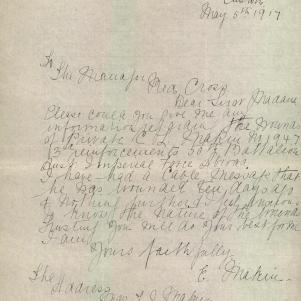 May 5th 1917
To
The Manager
Red Cross
Dear Sir or Madam
Please could you give me any
information regarding the wounds
of Private
3rd reinforcements 50th Battalion
Aust Imperial Force abroad.
I have had a Cable Message that
he was wounded ten days ago
& nothing further
to know the nature of the wounds
Trusting you will do your best for me
I am
Yours faithfully
E. Makin
The
Address
Mrs